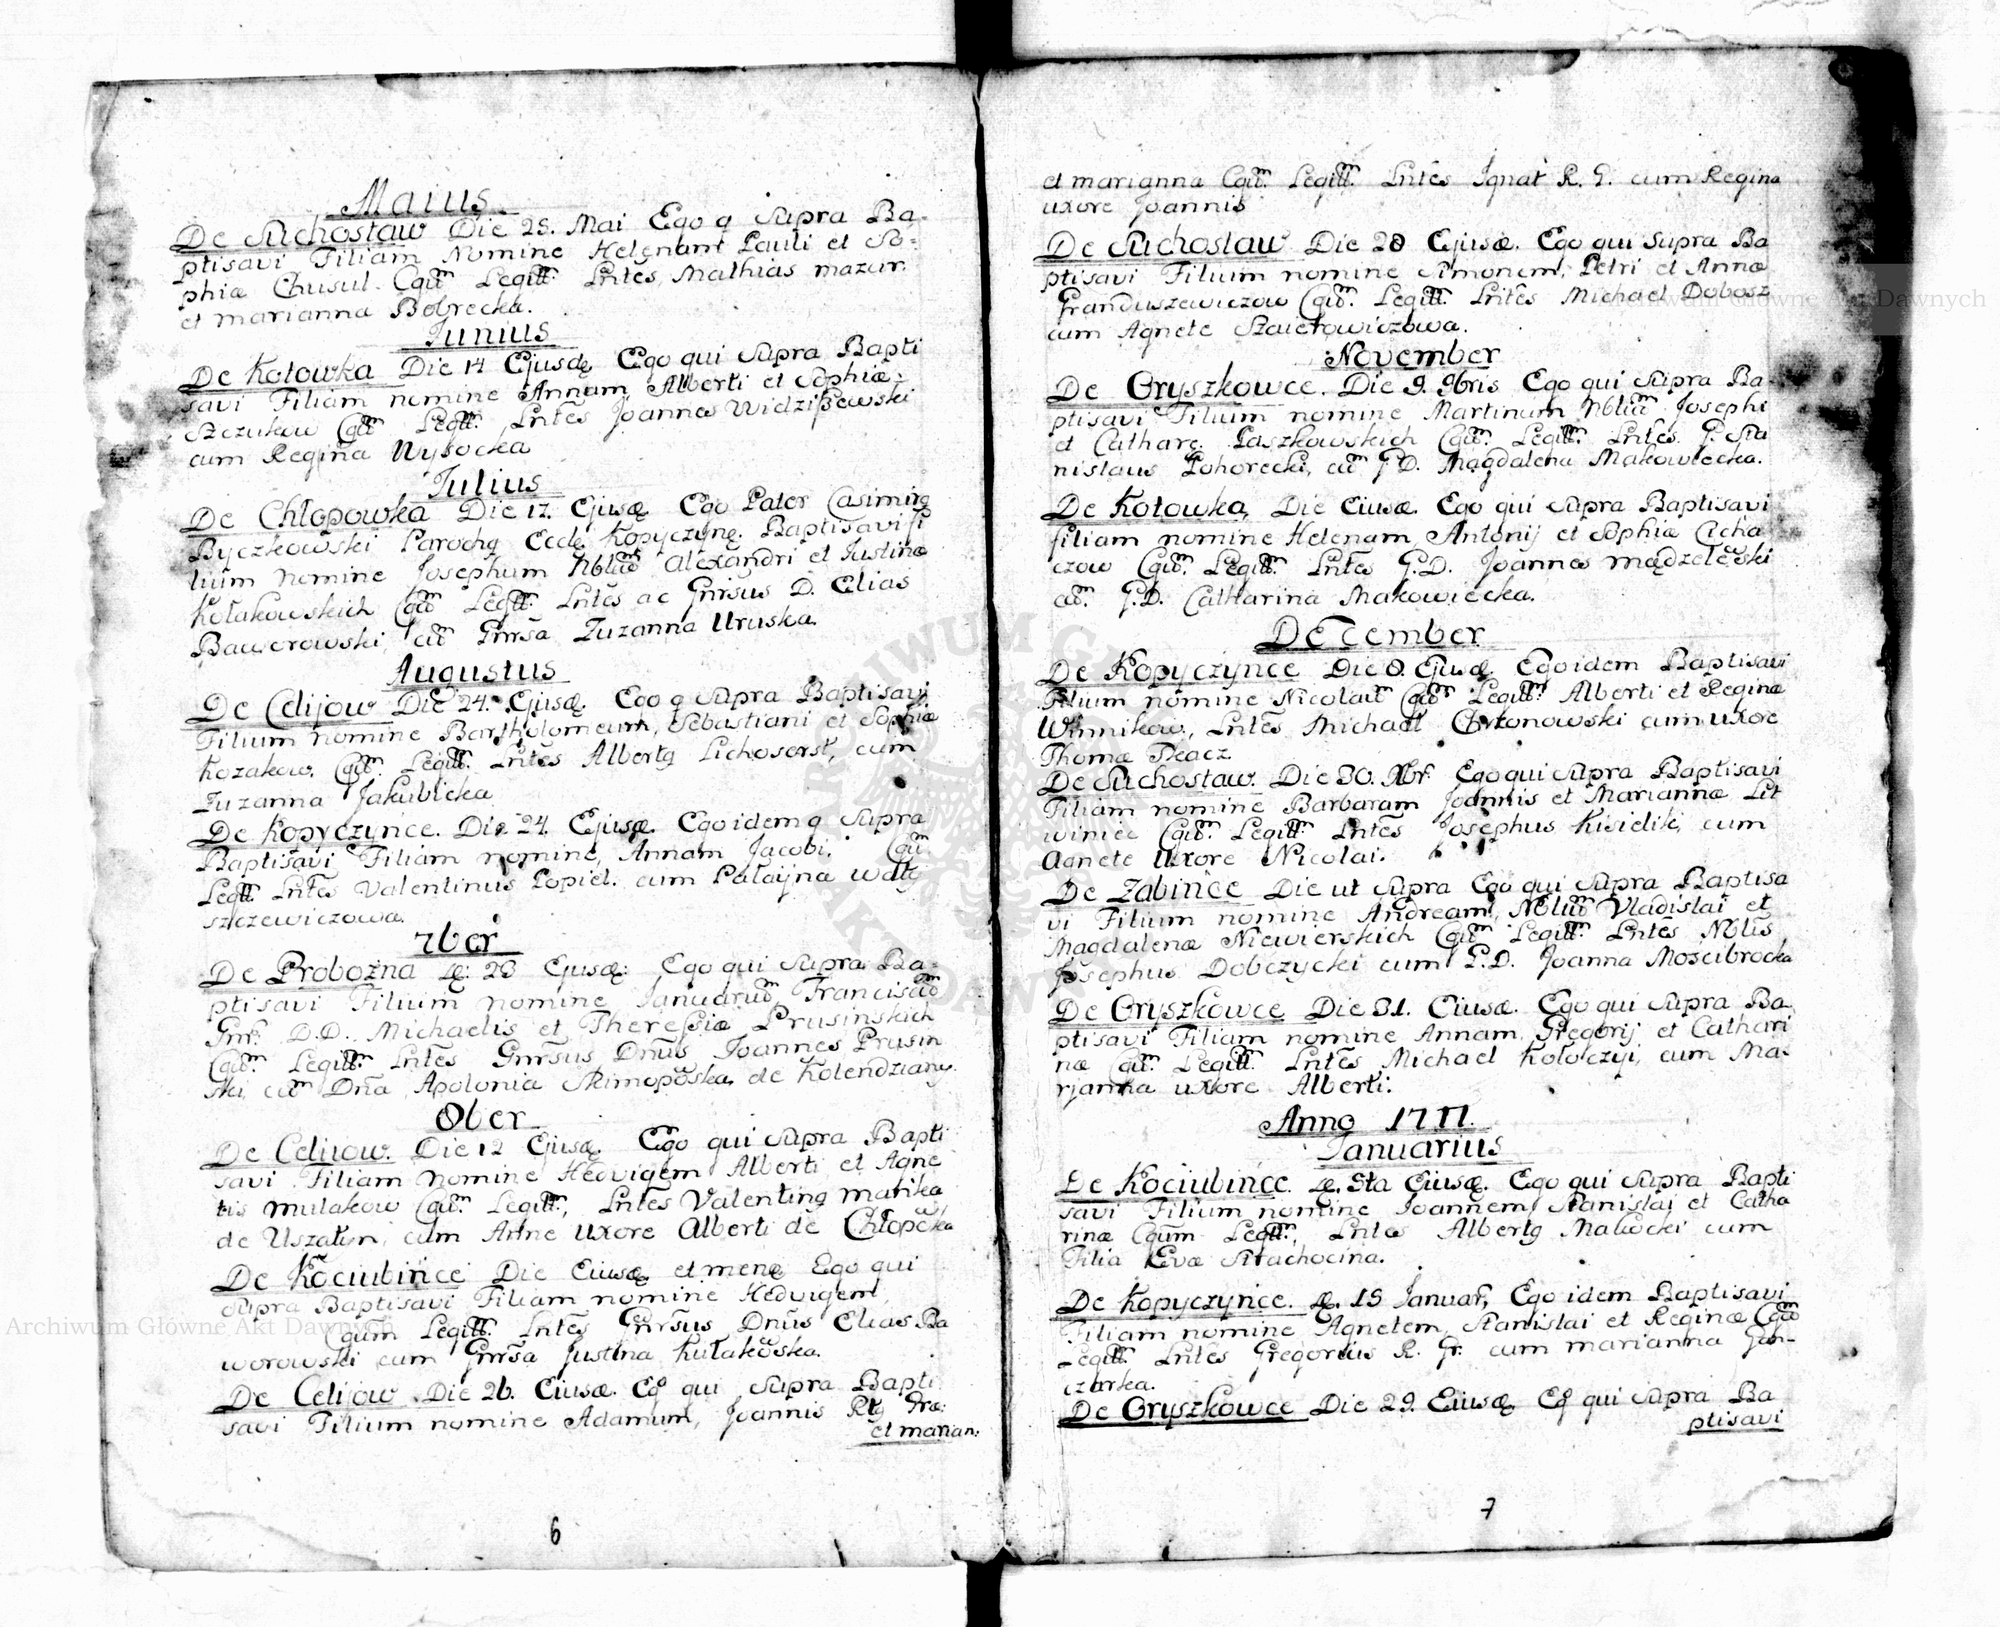 Maius
De Suchostaw Die 25. Mai Ego q Supra Ba-
ptisavi Filiam Nomine Helenam Pauli et So-
phiæ Chusul. Cgūm Legitt. Lntēs, Mathias mazur.
et marianna Bobrecka.
Junius
De Kotowka Die 14 Ejusdę Ego qui Supra Bapti
savi Filiam nomine Annam, Alberti et Sophiæ
Szczukow Cgūm Legitt. Lntēs Joannes Widzißewski
cum Regina Wysocka
Julius
De Chłopowka Die 17. Ejusę Ego Pater Casimirg
Byczkowski Parochg Eccłę Kopyczynę. Baptisavi Fi
lium nomine Josephum Nbliūm Alexandri et Justinæ
Kołakowskich Cgūm Legitt. Lntēs ac Gnrsus D. Elias
Baworowski, cūm Gnrsa Zuzanna Uruska.
Augustus
De Celijow Die 24. Ejusę. Ego q Supra Baptisavi
Filium nomine Bartholomeum, Sebastiani et Sophiæ
Kozakow. Cgūm Legitt. Lntēs Albertg Lichoserst, cum
Zuzanna Jakubicka
De Kopyczyńce. Die 24. Ejusę. Ego idem q Supra
Baptisavi Filiam nomine, Annam Jacobi. Cgūm
Legitt. Lntēs Valentinus Popiel. cum Pałayna
szczewiczowa.
7ber
De Probożna Æ: 28 Ejusę: Ego qui Supra Ba-
ptisavi Filium nomine Januariūm, Franciscūm
Gnr. D.D. Michaelis et Thereßiæ Prusinskich
Cgūm Legitt. Lntēs Gnrsus Dnūs Joannes Prusin
ski, cūm Dnā Apolonia de Kolendziany.
8ber
De Celijow. Die 12 Ejusę. Ego qui Supra Bapti
savi Filiam Nomine Hedvigem Alberti et Agne
tis mulakow Cgūm. Legitt., Lntēs Valenting matika
de Uszatyn, cum Anne uxore Alberti de Chłopcka
De Kociubińce Die Eiusę et menę Ego qui
Supra Baptisavi Filiam nomine Hedvigem,
Cgūm Legitt. Lntēs Gnrsus Dnūs Elias Ba
worowski cum Gnrsa Justina Kułakowska.
De Celijow Die 26. Eiusæ. Eg qui Supra Bapti
savi Filium nomine Adamum, Joannis Rtg Græ:
et marian:
6
et marianna Cgūm. Legitt. Lntēs Jgnat R. G. cum Regina
uxore Joannis
De Suchostaw Die 28 Ejusæ. Ego qui Supra Ba
ptisavi Filium nomine Simonem, Petri et Annæ
Granduszewiczow Cgūm. Legitt. Lntēs Michael Dobosz
cum Agnete Szaierowiczowa.
November
De Oryszkowce. Die 9. 9bris Ego qui Supra Ba-
ptisavi Filium nomine Martinum Nbliūm Josephi
et Catharę. Paszkowskich Cgūm. Legitt. Lntēs. G. Sta
nislaus Pohorecki, cūm G.D. Magdalena Makowiecka.
De Kotowka, Die Eiusæ. Ego qui Supra Baptisavi
filiam nomine Helenam, Antonij et Sophiæ Cicha
czow Cgūm. Legitt. Lntēs G.D. Joannes mądzelēski
cūm. G.D. Catharina Makowiecka.
December
De Kopyczyńce Die 8. Ejusę Ego idem Baptisavi
Filium nomine Nicolaūm Cgūm Legitt. Alberti et Reginæ
Winnikow, Lntēs Michael Chrzonowski cum uxore
Thomæ Tkacz
De Suchostaw. Die 30. Xbr. Ego qui Supra Baptisavi
Filiam nomine Barbaram Joannis et Mariannæ Lit
winiec Cgūm. Legitt. Lntēs Josephus Kisielik, cum
Agnete Uxore Nicolai.
De Zabińce Die ut Supra Ego qui Supra Baptisa
vi Filium nomine Andream, Nbliūm Vladislai et
Magdalenæ Niewierskich Cgūm Legitt. Lntēs Nblis
Josephus Dobczycki cum G.D. Joanna Moscibrocka
De Oryszkowce Die 31. Eiusæ. Ego qui Supra Ba
ptisavi Filiam nomine Annam Gregorij et Cathari
næ Cgūm. Legitt. Lntēs Michael Kołoczyi, cum Ma-
rjanna uxore Alberti.
Anno 1777.
Januarius
De Kociubińce. Æ. 5ta Eiusę. Ego qui Supra Bapti
savi Filium nomine Joannem Stanislai et Catha
rinæ Cgūm Legitt., Lntēs Albertg Malwcki cum
Filia Evæ Strachocina.
De Kopyczyńce. Æ. 15 Januar, Ego idem Baptisavi
Filiam nomine Agnetem, Stanislai et Reginæ Cgūm
Legitt. Lntēs Gregorius R. Gr. cum marianna Gon-
czarka.
De Oryszkowce Die 29. Eiusę Eg qui Supra Ba
ptisavi
7
Archiwum Główne Akt Dawnych
Archiwum Główne Akt Dawnych
ARCHIWUM GŁÓWNE AKT DAWNYCH